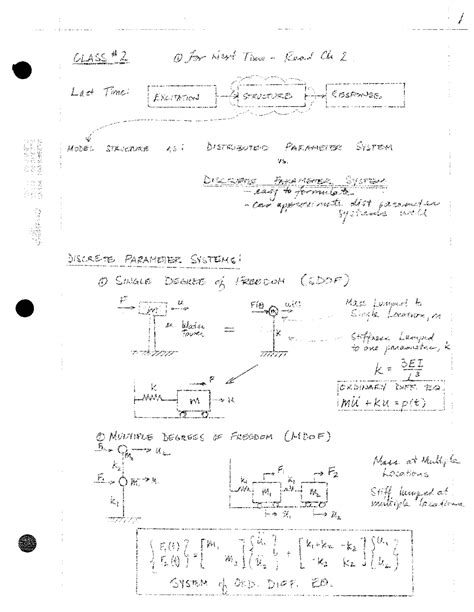 1
CLASS #2 ① For Next Time - Read Ch 2
Last Time: EXCITATION STRUCTURE RESPONSE
MODEL STRUCTURE AS: DISTRIBUTED PARAMETER SYSTEM
vs.
DISCRETE PARAMETER SYSTEM
- easy to formulate
- can approximate dist parameter
systems well
DISCRETE PARAMETER SYSTEMS:
① SINGLE DEGREE of FREEDOM (SDOF)
F m u
Water
Tower
=
F(t) u(t) m k
Mass Lumped to
Single Location, m
Stiffness Lumped
to one parameter, k
k = 3EI/L³
K m P u
ORDINARY DIFF. EQ.
mü + ku = p(t)
② MULTIPLE DEGREES OF FREEDOM (MDOF)
F₂ m₂ u₂
k₂
F₁ m₁ u₁
k₁
k₁ m₁ k₂ m₂ F₁ F₂ u₁ u₂
Mass at Multiple
Locations
Stiff Lumped at
multiple locations
{F₁(t) F₂(t)} = [m₁ m₂] {ü₁ ü₂} + [k₁+k₂ -k₂ -k₂ k₂] {u₁ u₂}
SYSTEM of ORD. DIFF. EQ.